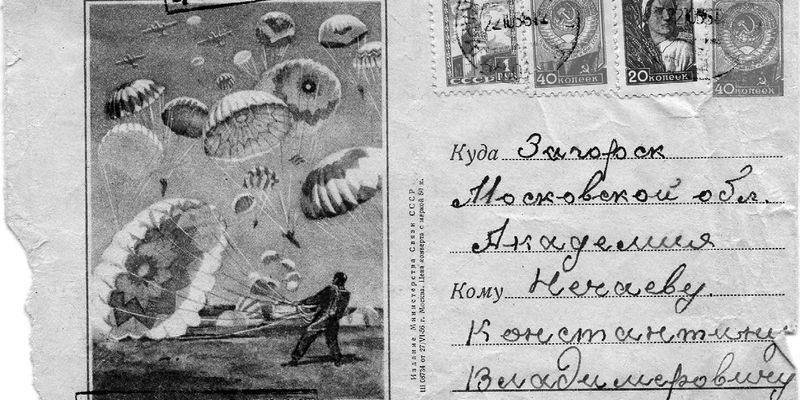 СССР 1 РУБ
40 КОПЕЕК
20 КОПЕЕК
40 КОПЕЕК
Куда Загорск
Московской обл.
Академия
Кому Нечаеву
Константину
Владимировичу
Издание Министерства Связи СССР
г. Москва. Цена конверта с маркой